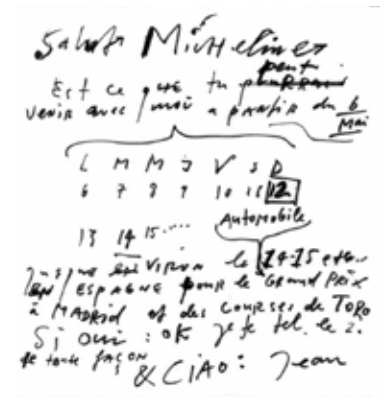 Salut Micheline
Est ce que tu peux
venir avec moi a partir du 6
Mai
L M M J V S D
6 7 8 9 10 11 12
Automobile
13 14 15....
Jusque environ le 14-15 et
en ESPAGNE pour le GRAND PRIX
à MADRID et des COURSES de TORO
Si oui : OK je te tel. le 2.
de toute façon
& CIAO : Jean